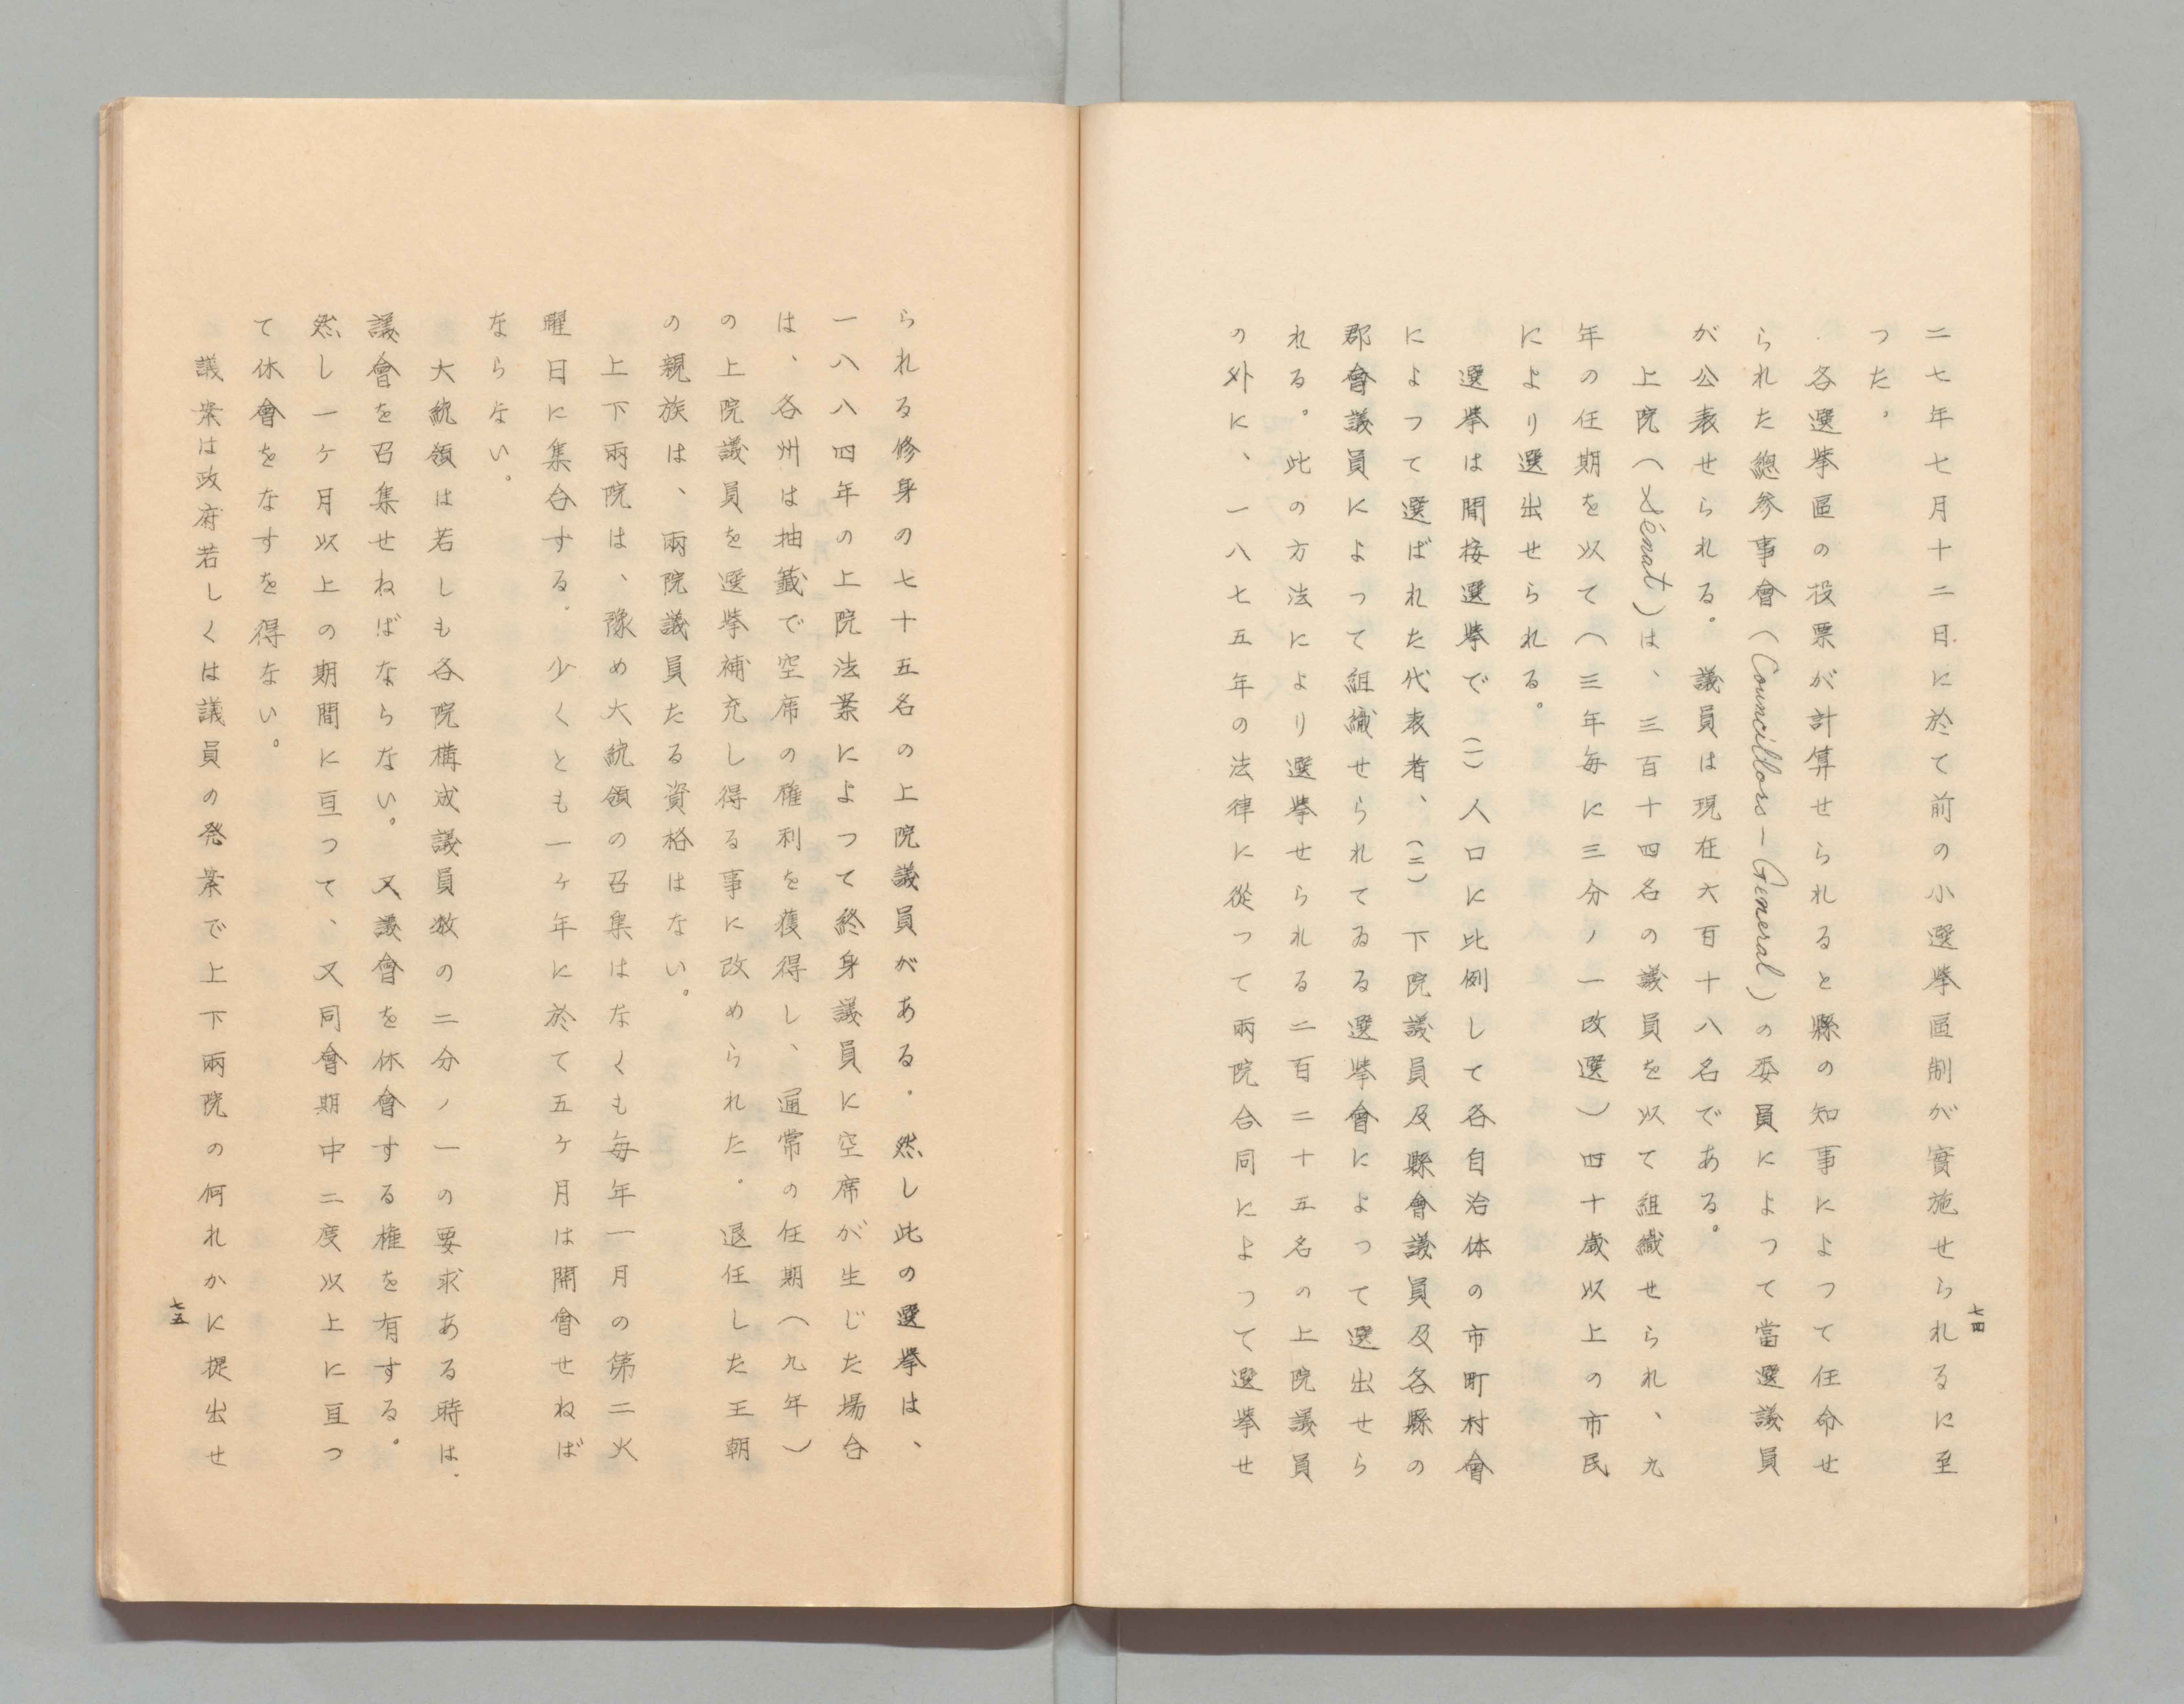 二七年七月十二日に於て前の小選挙區制が實施せられるに至
つた。
各選挙區の投票が計算せられると縣の知事によつて任命せ
られた總参事會(Councillors—General)の委員によつて當選議員
が公表せられる。議員は現在六百十八名である。
上院(Sénat)は、三百十四名の議員を以て組織せられ、九
年の任期を以て(三年毎に三分ノ一改選)四十歳以上の市民
により選出せられる。
選挙は間接選挙で(一)人口に比例して各自治体の市町村會
によつて選ばれた代表者、(二)下院議員及縣會議員及各縣の
郡會議員によつて組織せられてゐる選挙會によつて選出せら
れる。此の方法により選挙せられる二百二十五名の上院議員
の外に、一八七五年の法律に從つて兩院合同によつて選挙せ
七四
られる修身の七十五名の上院議員がある．然し此の選挙は、
一八八四年の上院法案によつて終身議員に空席が生じた場合
は、各州は抽籤で空席の権利を獲得し、通常の任期(九年)
の上院議員を選挙補充し得る事に改められた．退任した王朝
の親族は、兩院議員たる資格はない。
上下兩院は、豫め大統領の召集はなくも毎年一月の第二火
曜日に集合する．少くとも一ヶ年に於て五ヶ月は開會せねば
ならない。
大統領は若しも各院構成議員数の二分ノ一の要求ある時は、
議會を召集せねばならない。又議會を休會する権を有する。
然し一ヶ月以上の期間に亘つて、又同會期中二度以上に亘つ
て休會をなすを得ない。
議案は政府若しくは議員の発案で上下兩院の何れかに提出せ
七五